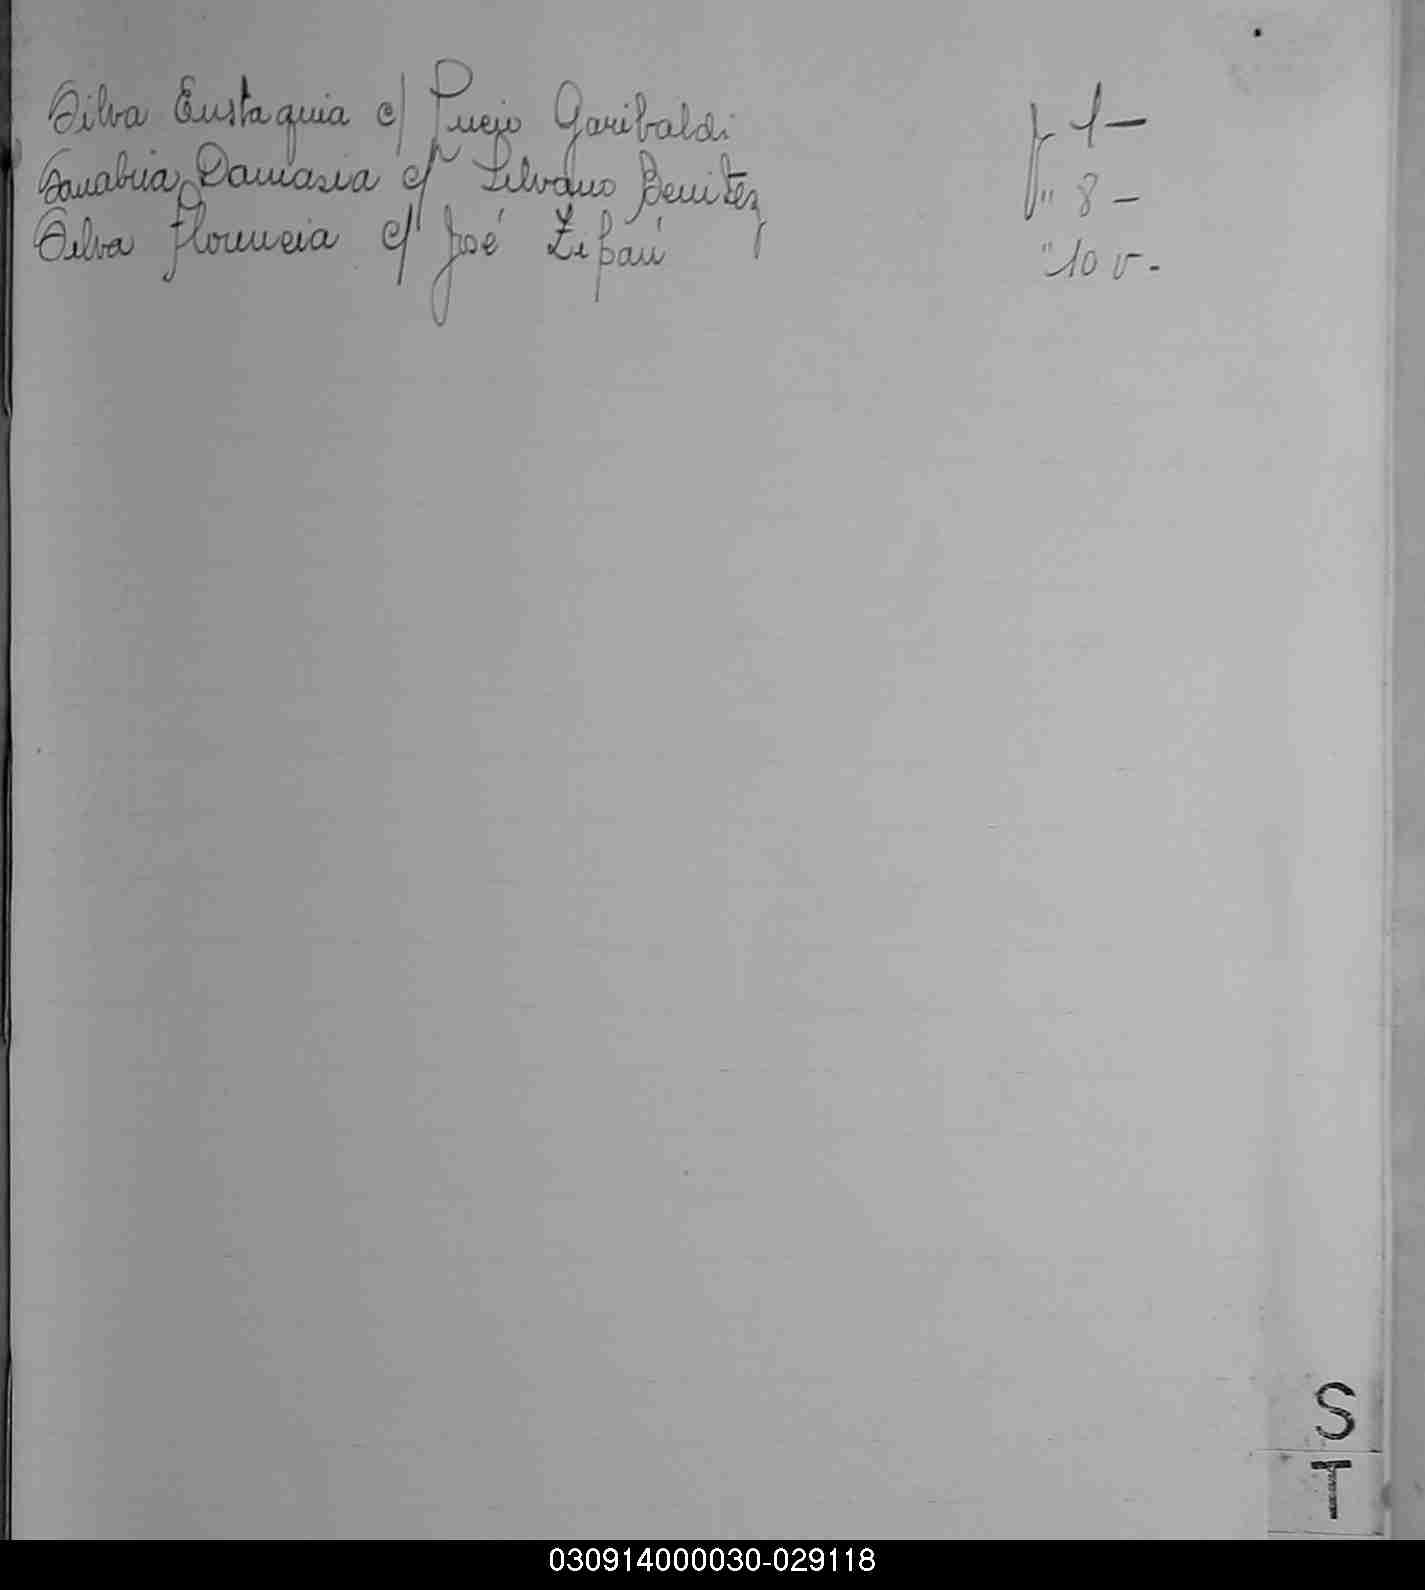 Silva Eustaquia c/ Lucio Garibaldi f 1 —
Sanabria Damasia c/ Silvano Benitez " 8 —
Silva Florencia c/ José " 10 v -
S
T
030914000030-029118